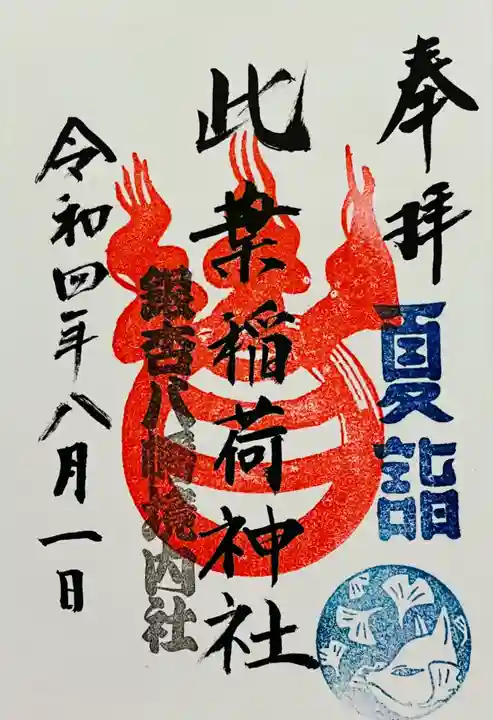 奉拝
夏詣
此葉稲荷神社
銀杏八幡境内社
令和四年八月一日